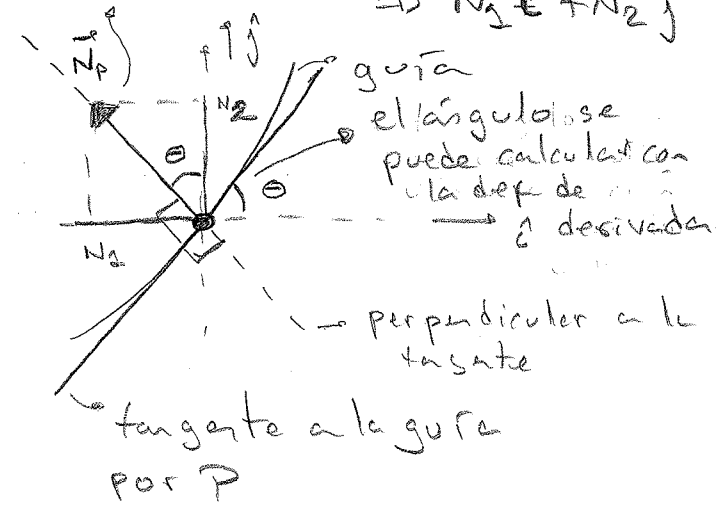 ⇒ N1 î + N2 ĵ
N⃗p
ĵ
guía
N2
el ángulo se
puede calcular con
la def de
î derivada
θ
θ
N1
perpendicular a la
tangate
tangente a la guía
por P